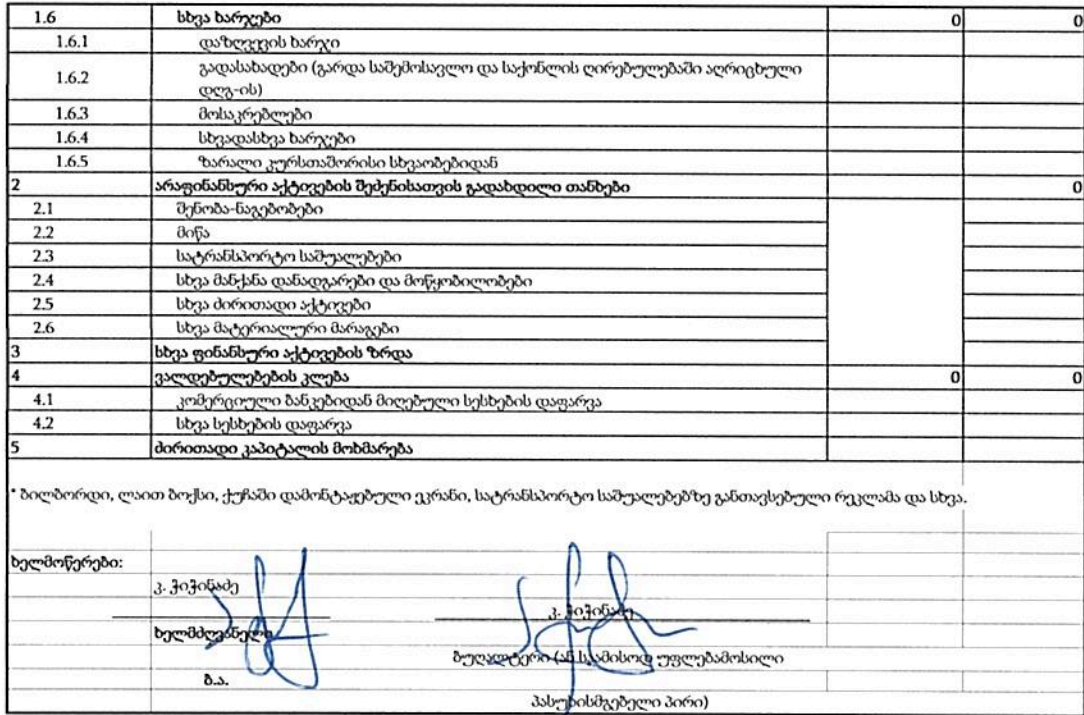 1.6 სხვა ხარჯები 0 0
1.6.1 დაზღვევის ხარჯი
1.6.2 გადასახადები (გარდა საშემოსავლო და საქონლის ღირებულებაში აღრიცხული
დღგ-ის)
1.6.3 მოსაკრებლები
1.6.4 სხვადასხვა ხარჯები
1.6.5 ზარალი კურსთაშორისი სხვაობებიდან
2 არაფინანსური აქტივების შეძენისათვის გადახდილი თანხები 0
2.1 შენობა-ნაგებობები
2.2 მიწა
2.3 სატრანსპორტო საშუალებები
2.4 სხვა მანქანა დანადგარები და მოწყობილობები
2.5 სხვა ძირითადი აქტივები
2.6 სხვა მატერიალური მარაგები
3 სხვა ფინანსური აქტივების ზრდა
4 ვალდებულებების კლება 0 0
4.1 კომერციული ბანკებიდან მიღებული სესხების დაფარვა
4.2 სხვა სესხების დაფარვა
5 ძირითადი კაპიტალის მოხმარება
* ბილბორდი, ლაით ბოქსი, ქუჩაში დამონტაჟებული ეკრანი, სატრანსპორტო საშუალებებზე განთავსებული რეკლამა და სხვა.
ხელმოწერები:
კ. ჭიჭინაძე
კ. ჭიჭინაძე
ხელმძღვანელი
ბუღალტერი (ან საამისოდ უფლებამოსილი
ბ.ა.
პასუხისმგებელი პირი)